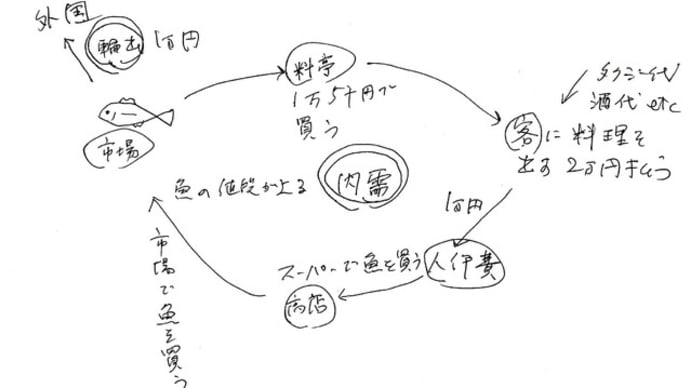 外国
輸出 1万円
市場
料亭
1万5千円で
買う
タクシー代
酒代 etc
客に料理を
出す 2万円払う
内需
魚の値段が上る
1万円
人件費
スーパーで魚を買う
商店
市場で魚を買う